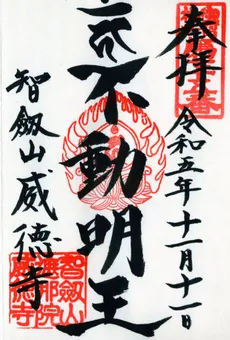 奉拝
令和五年十一月十一日
不動明王
智劔山威徳寺
智劔山
威徳寺